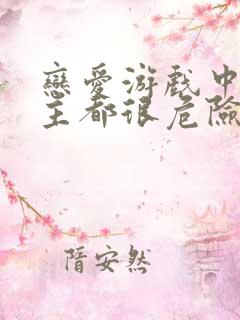 戀愛游戲中
主都很危險
隋安然